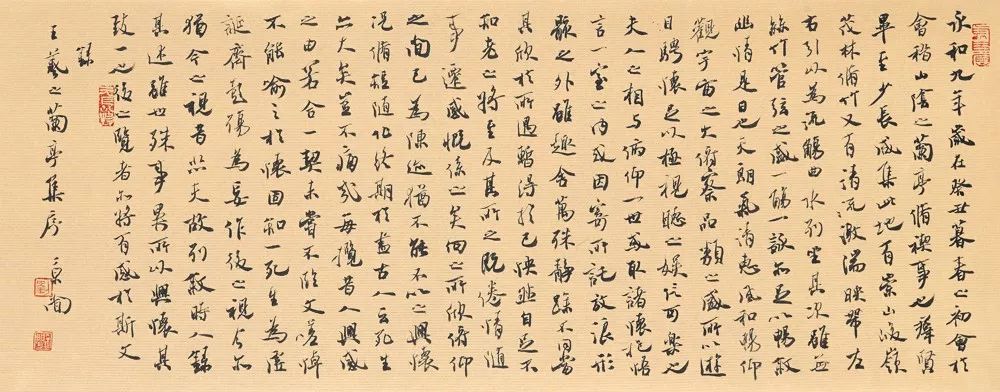 永和九年歲在癸丑暮春之初會於
會稽山陰之蘭亭脩禊事也羣賢
畢至少長咸集此地有崇山峻嶺
茂林脩竹又有清流激湍映帶左
右引以為流觴曲水列坐其次雖無
絲竹管弦之盛一觴一詠亦足以暢敘
幽情是日也天朗氣清惠風和暢仰
觀宇宙之大俯察品類之盛所以遊
目騁懷足以極視聽之娛信可樂也
夫人之相與俯仰一世或取諸懷抱悟
言一室之內或因寄所託放浪形
骸之外雖趣舍萬殊靜躁不同當
其欣於所遇暫得於己快然自足不
知老之將至及其所之既倦情隨
事遷感慨係之矣向之所欣俯仰
之間已為陳迹猶不能不以之興懷
況脩短隨化終期於盡古人云死生
亦大矣豈不痛哉每攬昔人興感
之由若合一契未嘗不臨文嗟悼
不能喻之於懷固知一死生為虛
誕齊彭殤為妄作後之視今亦
猶今之視昔悲夫故列敘時人錄
其述雖世殊事異所以興懷其
致一也後之覽者亦將有感於斯文
錄
王羲之蘭亭集序